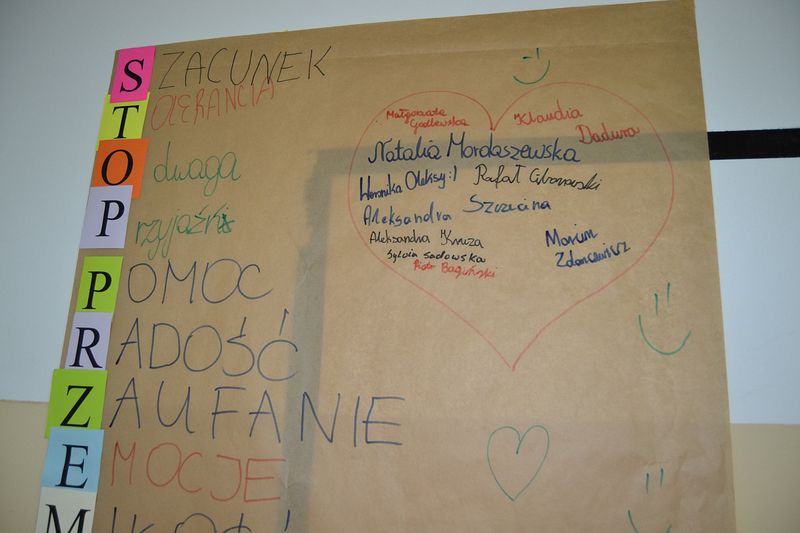 SZACUNEK
TOLERANCJA
Odwaga
Przyjaźń
POMOC
RADOŚĆ
ZAUFANIE
EMOCJE
M
Małgorzata
Godlewska
Klaudia
Dadura
Natalia Mordaszewska
Weronika Oleksy:)
Aleksandra
Szczecina
Aleksandra
Sylwia Sadowska
Piotr Bagiński
Rafał